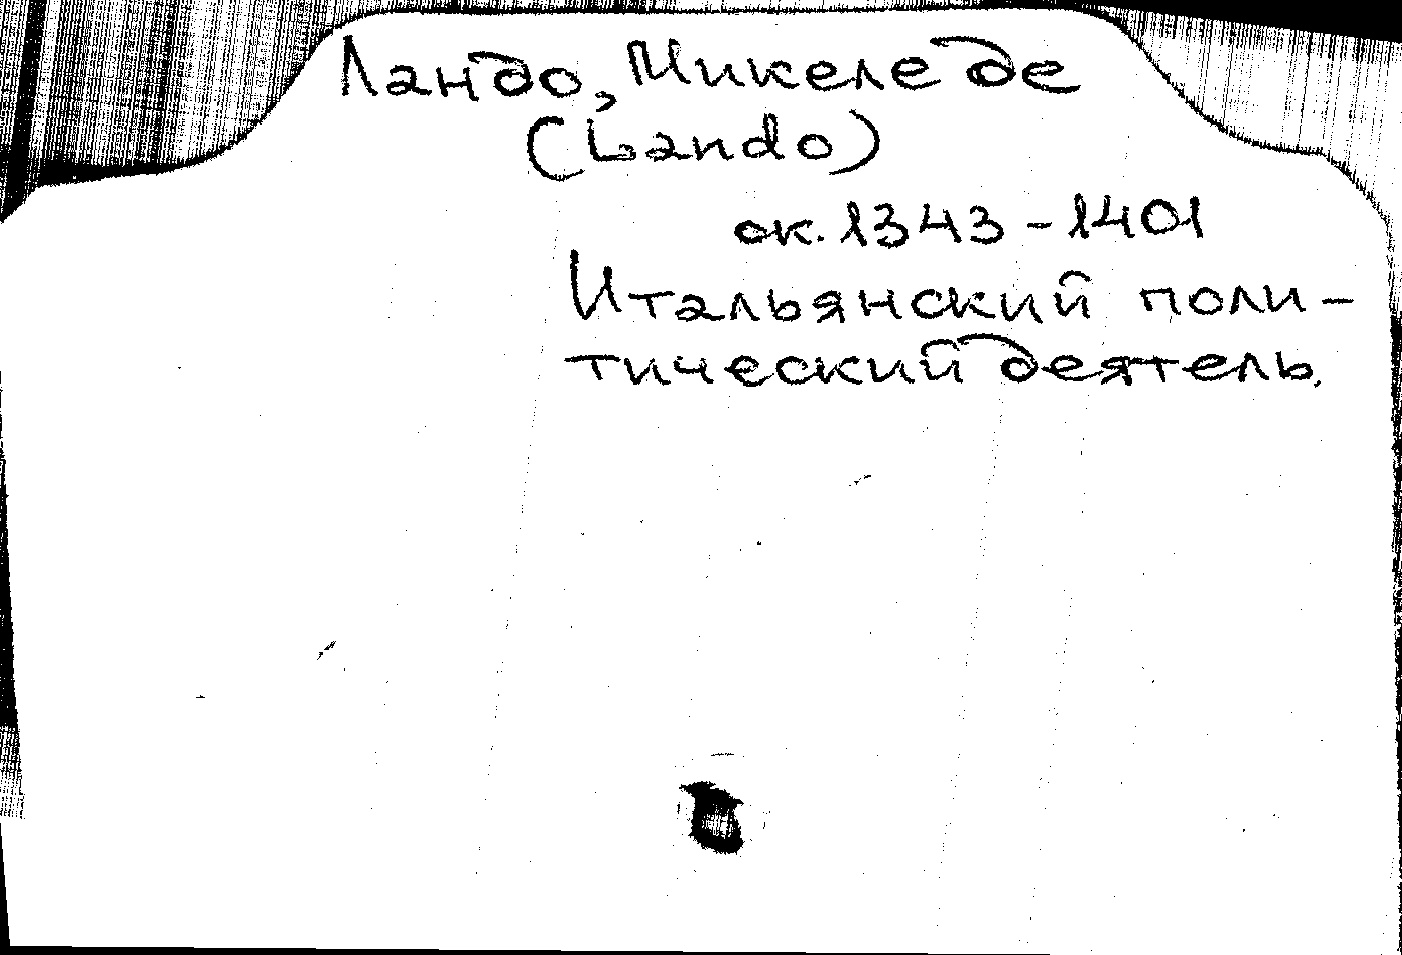 Ландо, Микеле де
(Lando)
ок. 1343-1401
Итальянский поли-
тический деятель.